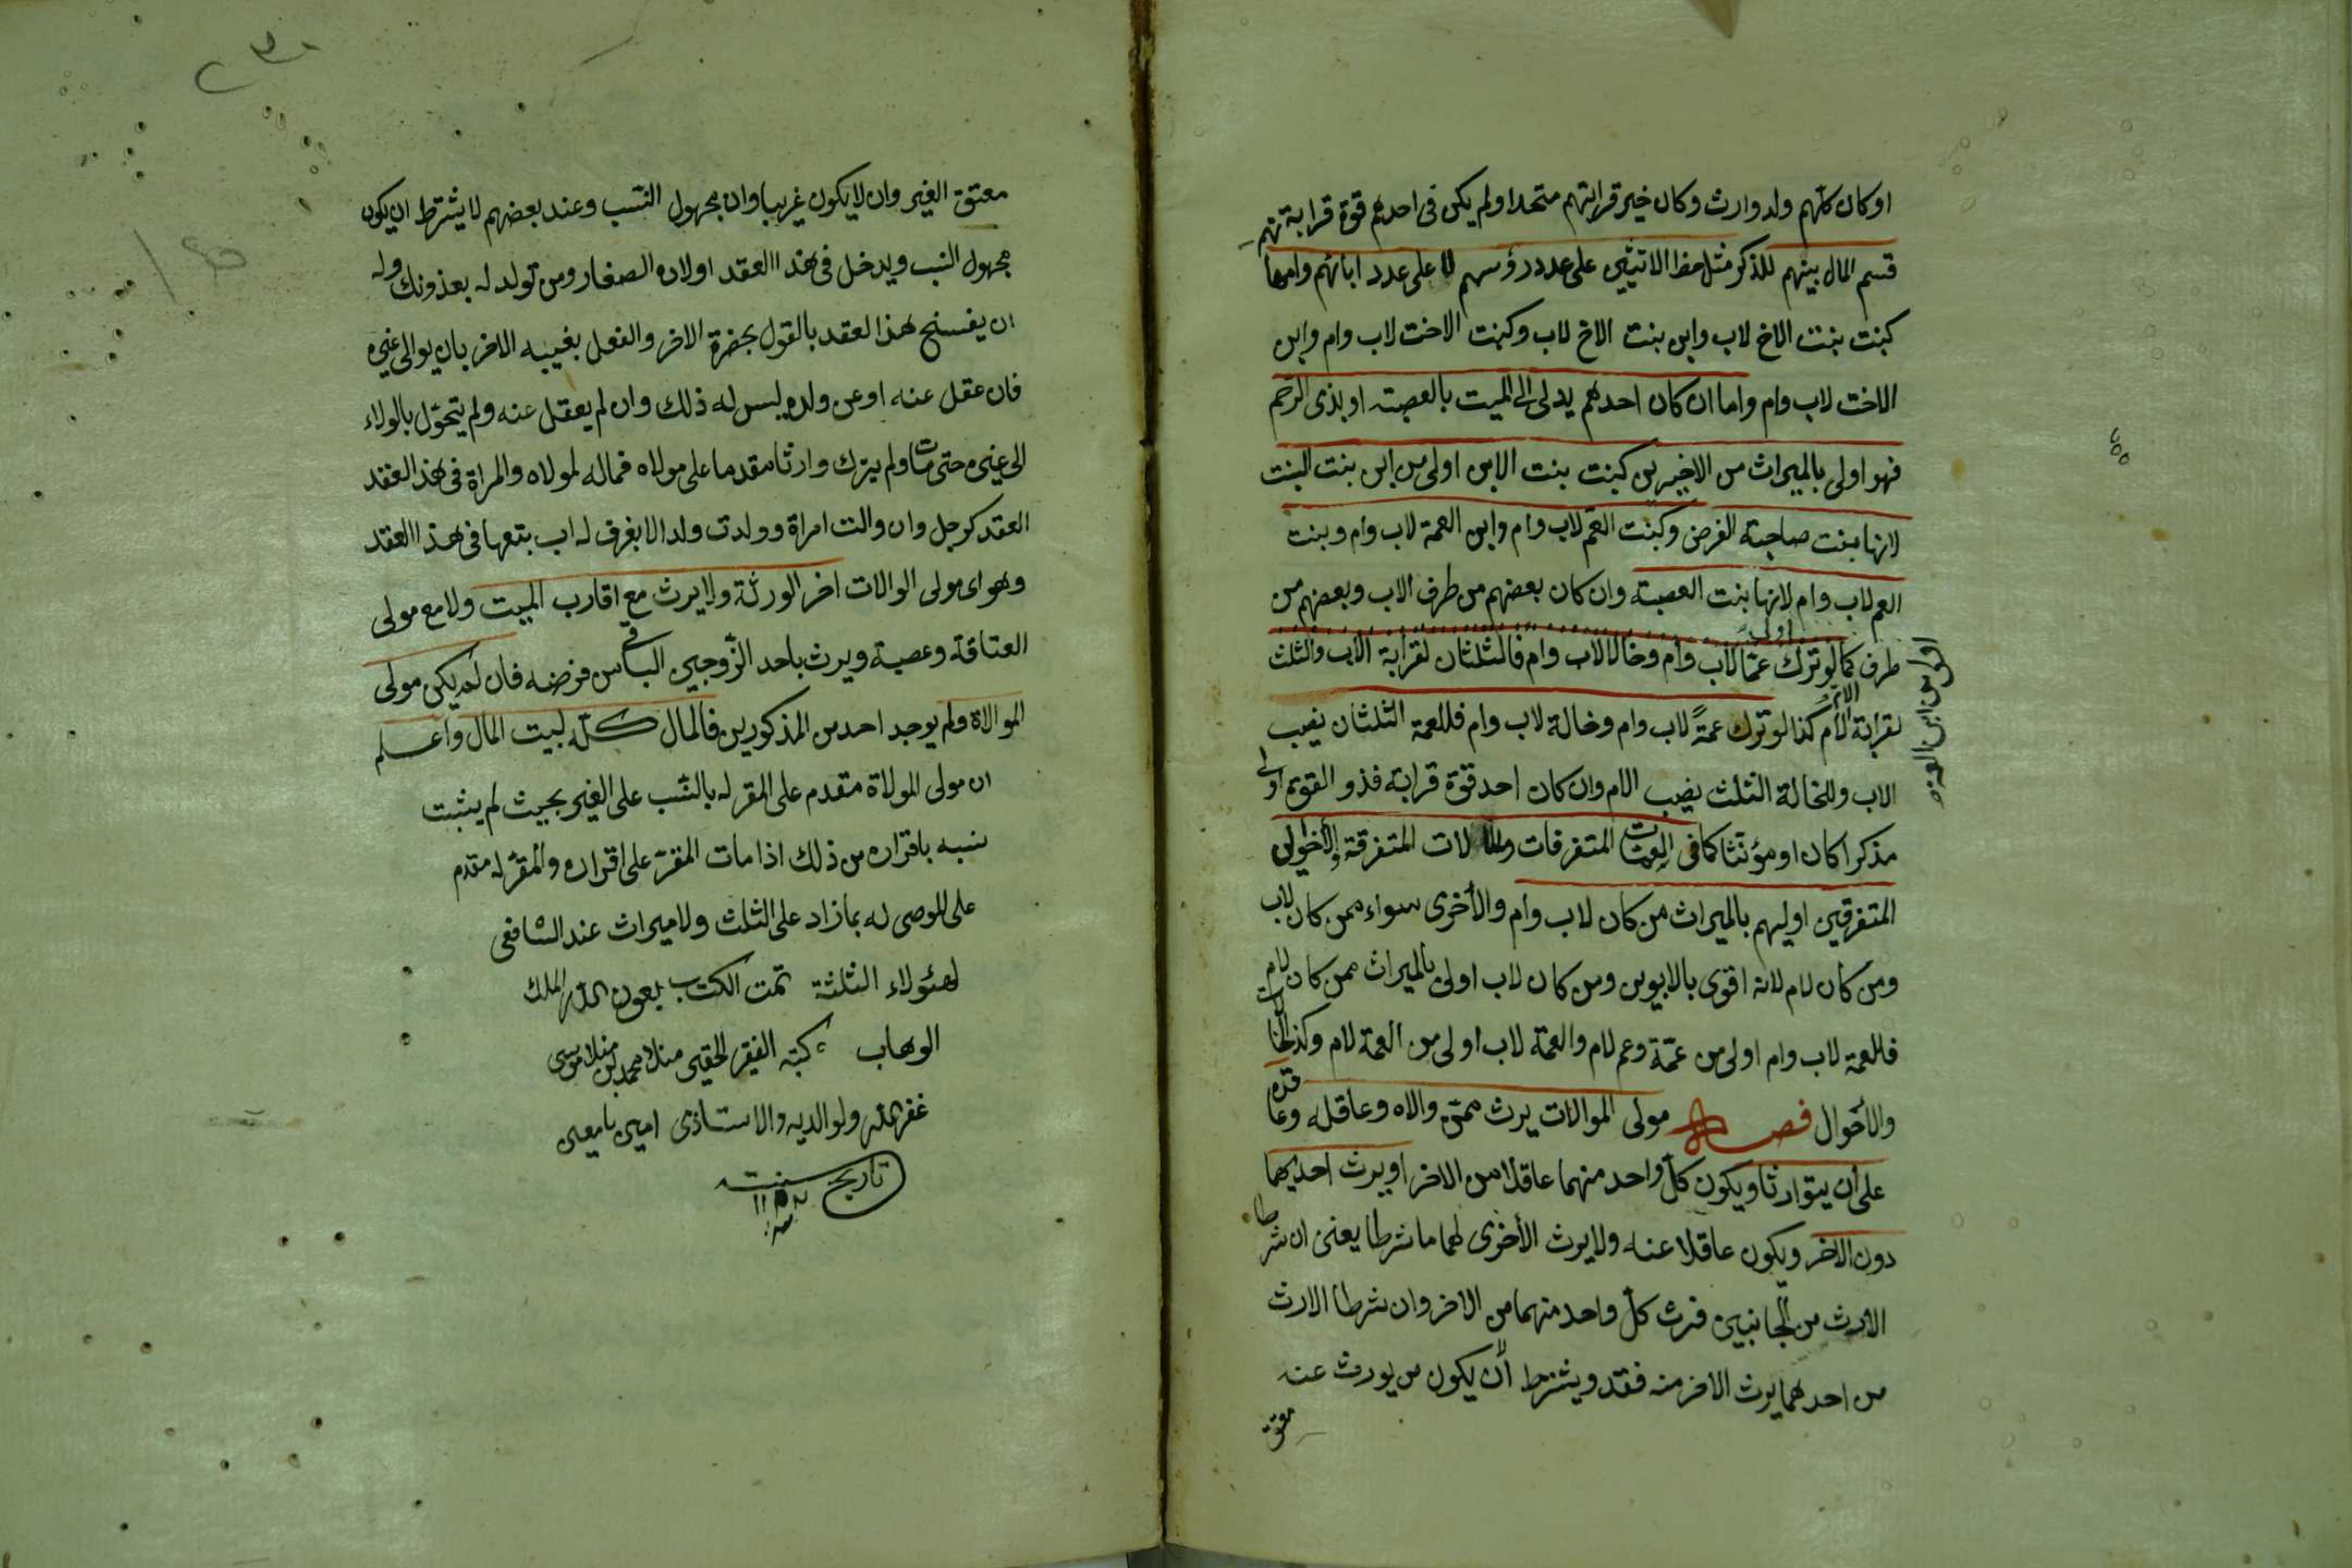 او كان كلهم ولد وارث وكان خير قرابتهم متحدا ولم يكن فى احدهم قوة قرابة
قسم المال بينهم للذكر مثل حظ الانثيين على عدد رؤسهم لا على عدد ابائهم وامها
كبنت بنت الاخ لاب وابن بنت الاخ لاب وكبنت الاخت لاب وام وابن
الاخت لاب وام واما ان كان احدهم يدلى الى الميت بالعصبة او بذى الرحم
فهو اولى بالميراث من الاخيرين كبنت بنت الابن اولى من ابن بنت البنت
لانها بنت صاحبة الفرض وكبنت العم لاب وام وابن العمة لاب وام وبنت
العم لاب وام لانها بنت العصبة وان كان بعضهم من طرف الاب وبعضهم من
اولى من ابن العمة
طرف كما لو ترك عمّا لاب وام وخالا لاب وام فالثلثان لقرابة الاب والثلث
لقرابة الام كذا لو ترك عمةً لاب وام وخالة لاب وام فللعمة الثلثان نصيب
الاب وللخالة الثلث نصيب الام وان كان احد قوة قرابة فذو القوة اولى
مذكرا كان او مؤنثا كما فى العمات المتفرقات والخالات المتفرقة والاخوال
المتفرقين اوليهم بالميراث من كان لاب وام والأخرى سواء ممن كان لاب
ومن كان لام لانه اقوى بالابوين ومن كان لاب اولى بالميراث ممن كان لام
فالعمة لاب وام اولى من عمّة وعم لام والعمة لاب اولى من العمة لام وكذا الخالات
والأخوال فصل مولى الموالات يرث ممن والاه وعاقله وعاقده
على أن يتوارثا ويكون كلّ واحد منهما عاقلا من الاخر او يرث احديهما
دون الاخر ويكون عاقلا عنه ولا يرث الأخرى لهما ما شرطا يعنى ان شرطا
الارث من الجانبين فيرث كلّ واحد منهما من الاخر وان شرطا الارث
من احدهما يرث الاخر منه فقد ويشترط أن لا يكون من يورث عنه
معتق
معتق الغير وان لا يكون غريبا وان مجهول النسب وعند بعضهم لا يشترط ان يكون
مجهول النسب ويدخل فى هذا العقد اولاده الصغار ومن تولد له بعد ذلك وله
ان يفسخ هذا العقد بالقول بحضرة الاخر والفعل بغيبه الاخر بان يوالى غيره
فان عقل عنه او عن ولده ليس له ذلك وان لم يعقل عنه ولم يتحوّل بالولاء
الى غيره حتى مات ولم يترك وارثا مقدما على مولاه فماله لمولاه والمراة فى هذا العقد
العقد كرجل وان والت امراة وولدت ولدا لا يعرف له اب يتبعها فى هذا العقد
وهو اى مولى الموالات اخر الورثة ولا يرث مع اقارب الميت ولا مع مولى
العتاقة وعصبة ويرث باحد الزّوجين الباقى من فرضه فان لم يكن مولى
الموالاة ولم يوجد احد من المذكورين فالمال كله لبيت المال واعلم
ان مولى المولاة مقدم على المقر له بالنسب على الغير بحيث لم يثبت
نسبه باقراره من ذلك اذا مات المقرّ على اقراره والمقرّ له مقدم
على الموصى له بما زاد على الثلث ولا ميراث عند الشافعى
لهئولاء الثلثة تمت الكتاب بعون الله الملك
الوهاب كتبه الفقير الحقير منلا محمد بن منلا موسى
غفر الله ولوالديه والاستاذى امين يا معين
تاريخ سنت
١١٥٢